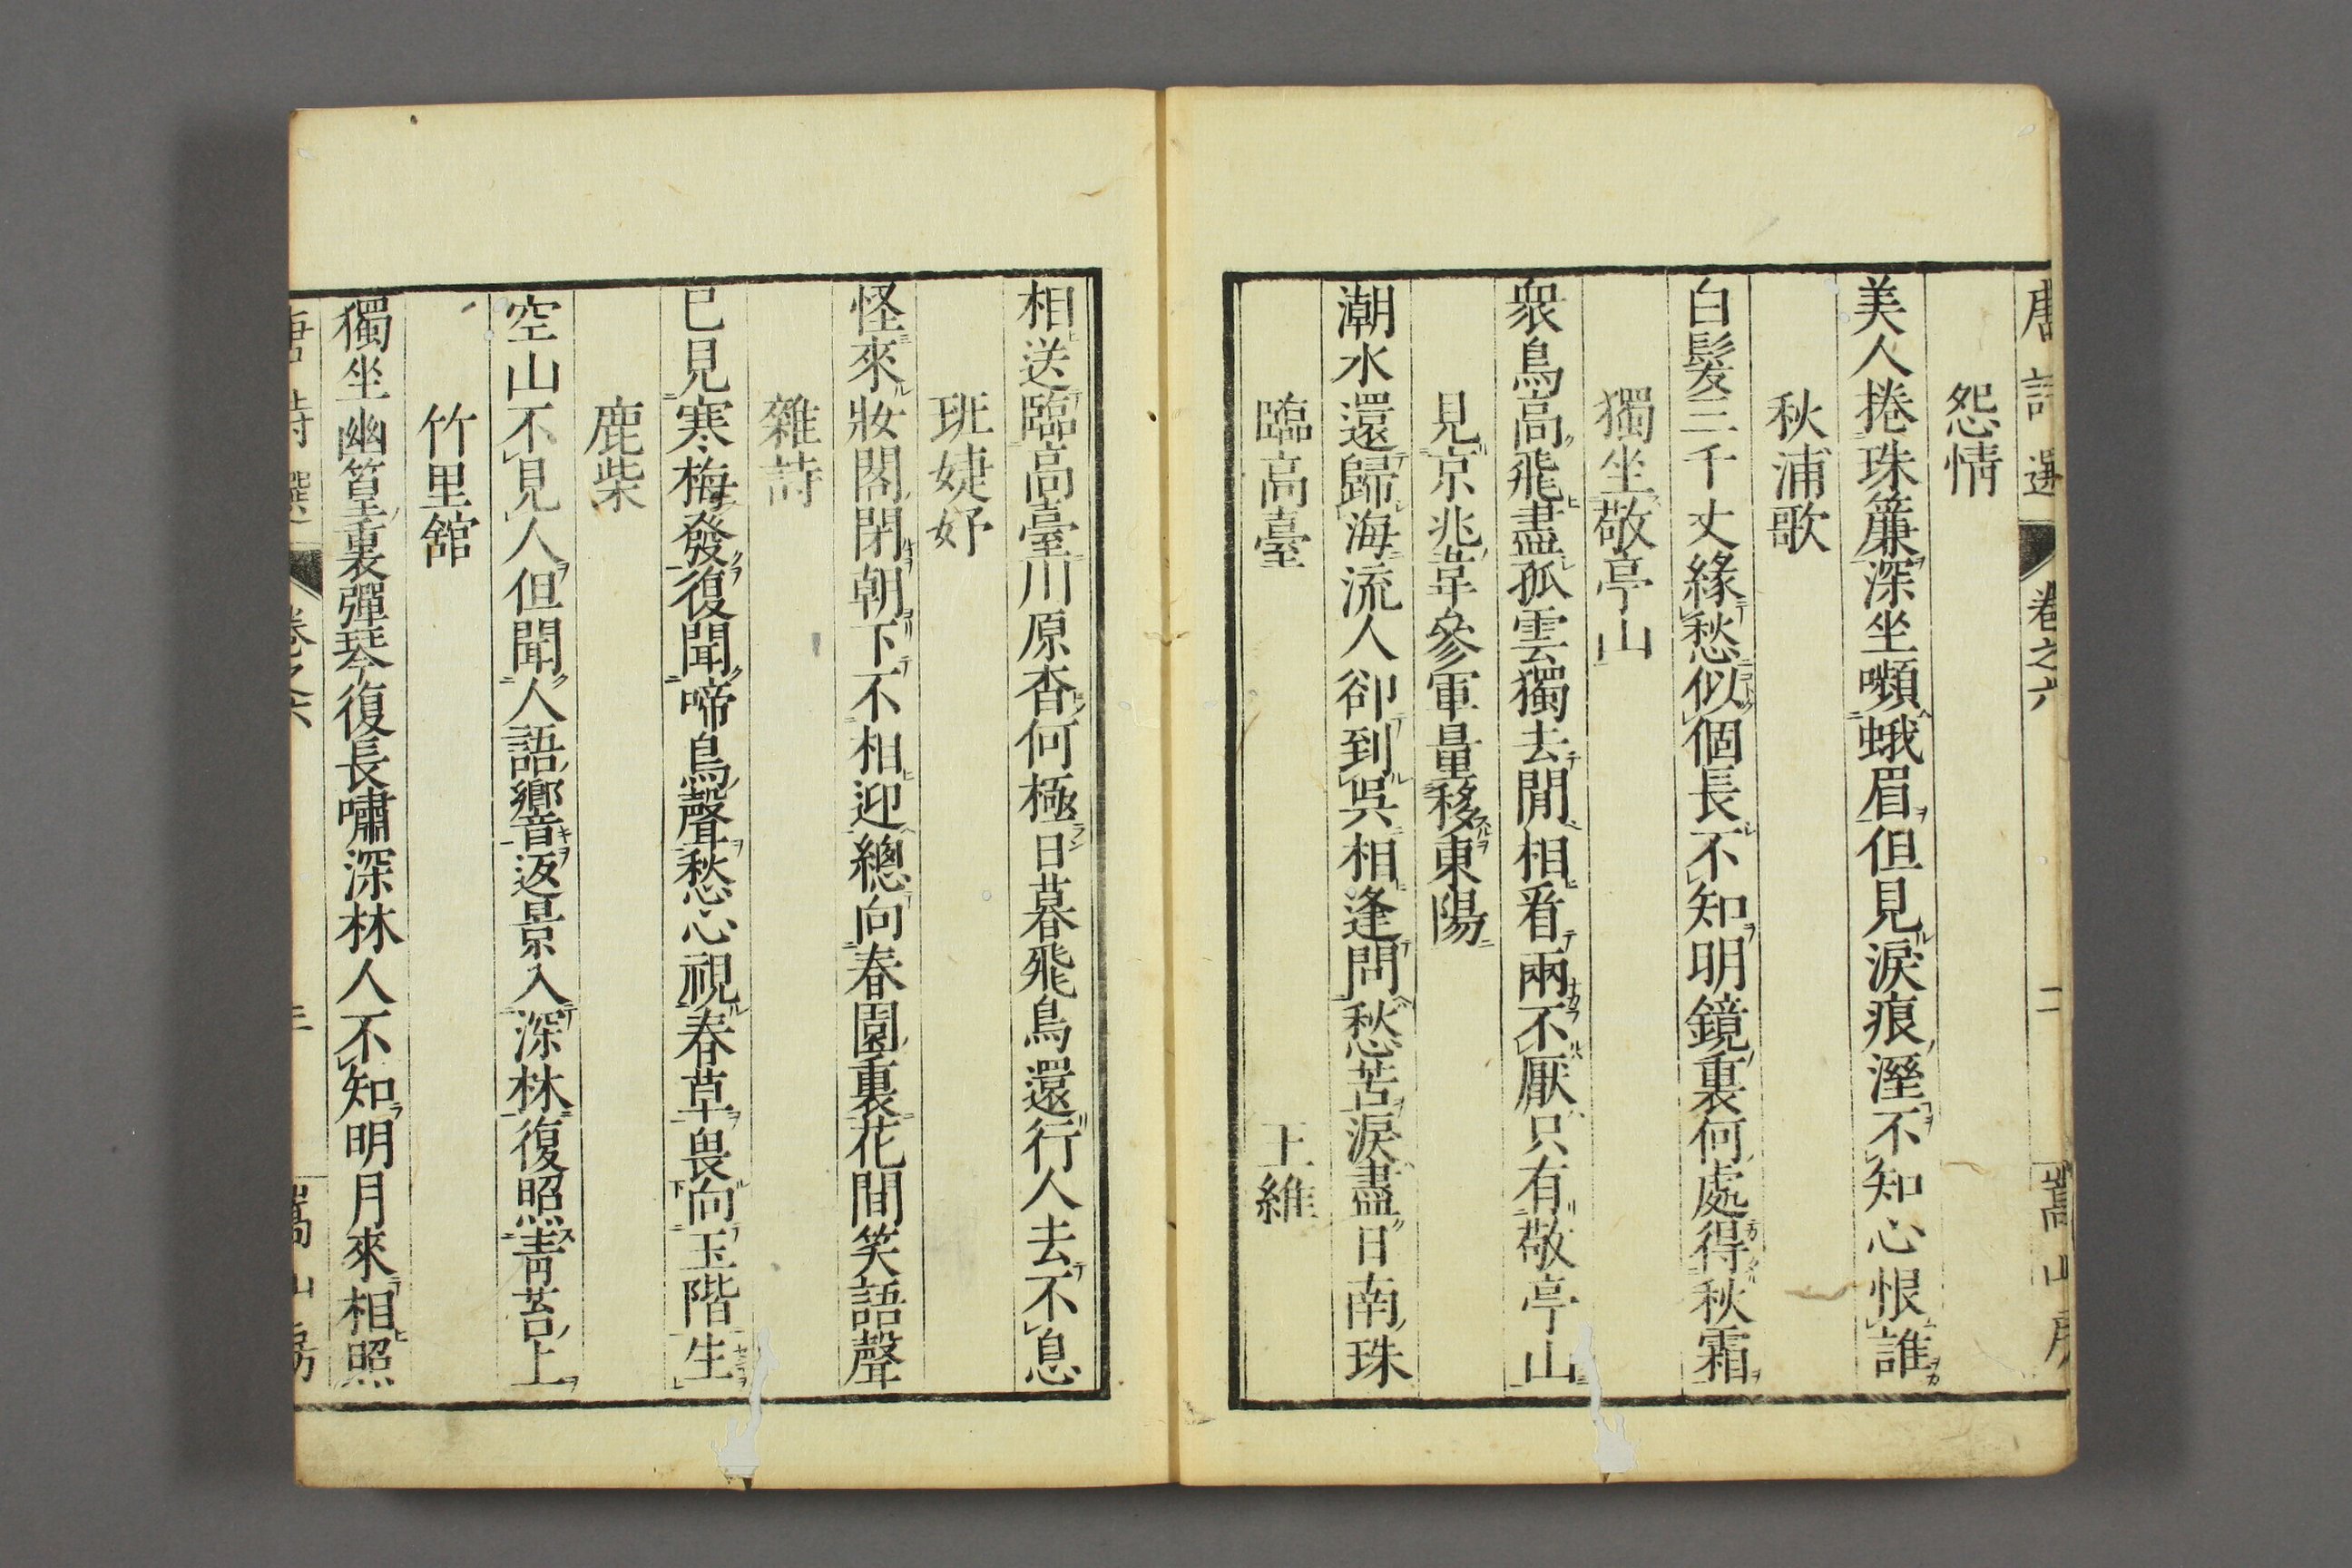 唐詩選 卷之六 二 嵩山房
怨情
美人捲珠簾深坐嚬蛾眉但見淚痕溼不知心恨誰
秋浦歌
白髮三千丈緣愁似個長不知明鏡裏何處得秋霜
獨坐敬亭山
衆鳥高飛盡孤雲獨去閒相看兩不厭只有敬亭山
見京兆韋參軍量移東陽
潮水還歸海流人卻到吳相逢問愁苦淚盡日南珠
臨高臺 王維
相送臨高臺川原杳何極日暮飛鳥還行人去不息
班婕妤
怪來妝閣閉朝下不相迎總向春園裏花間笑語聲
雜詩
已見寒梅發復聞啼鳥聲愁心視春草畏向玉階生
鹿柴
空山不見人但聞人語響返景入深林復照靑苔上
竹里舘
獨坐幽篁裏彈琴復長嘯深林人不知明月來相照
唐詩選 卷之六 三 嵩山房